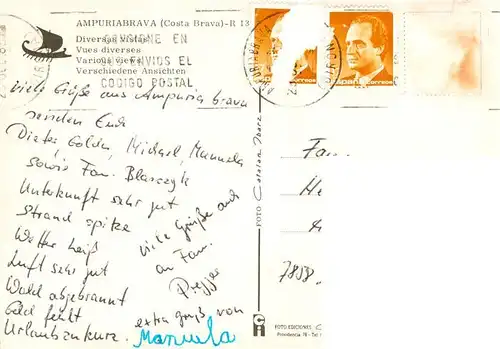 AMPURIABRAVA (Costa Brava)-R 13
Diversas vistas
Vues diverses
Various views
Verschiedene Ansichten
CONSIGNE EN
ENVIOS EL
CODIGO POSTAL
viele Grüße aus Ampuria brava
senden Euch
Dieter, Golda, Michael, Manuela
sowie Fam. Blaszyk
Unterkunft sehr gut
Strand spitze
Wetter heiß
Luft sehr gut
Wald abgebrannt
Geld fehlt
Urlaub zu kurz.
viele Grüße auch
an Fam.
extra gruß von
Manuela
FOTO Catalan Ibarz
correos
correos
Fam.
He
7858
FOTO EDICIONES
Providencia, 78 - Tel